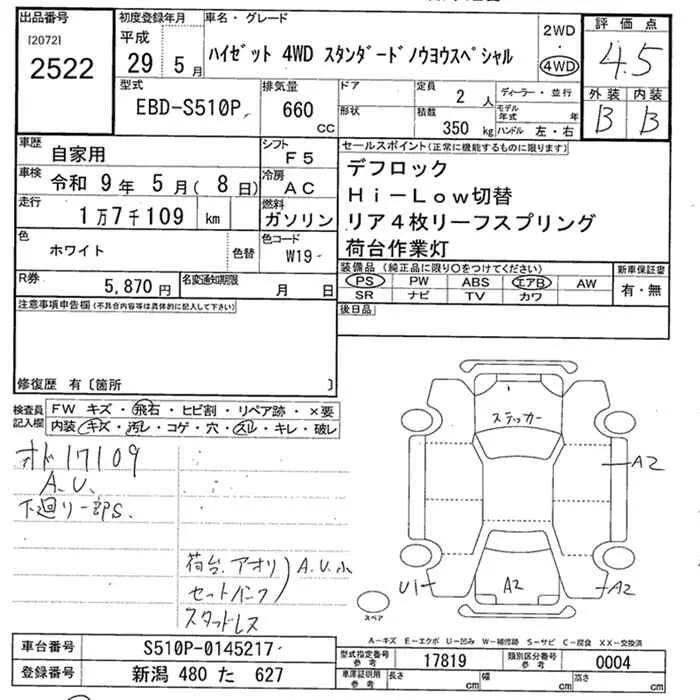 出品番号
[2072]
2522
初度登録年月
平成
29年 5月
車名・グレード
ハイゼット 4WD スタンダードノウヨウスペシャル
2WD
・
4WD
評価点
4.5
外装 内装
B B
型式
EBD-S510P
排気量
660
cc
ドア
形状
定員
2人
積数
350 kg
ディーラー・並行
モデル年式 年
ハンドル 左・右
車歴
自家用
シフト
F5
車検
令和 9年 5月( 8日)
冷房
AC
走行
1万7千109 km
燃料
ガソリン
色
ホワイト
色替
色コード
W19
R券
5,870円
名変通知期限
月 日
セールスポイント(正常に機能するものに限ります)
デフロック
Hi-Low切替
リア4枚リーフスプリング
荷台作業灯
装備品 (純正品に限り○をつけてください)
PS PW ABS エアB AW
SR ナビ TV カワ
新車保証書
有・無
後日品
注意事項申告欄(不具合内容等は具体的に記入して下さい)
修復歴 有〔箇所 〕
検査員記入欄
FW キズ・飛石・ヒビ割・リペア跡・×要
内装 キズ・汚レ・コゲ・穴・スレ・キレ・破レ
オド17109
A.U.
下廻り一部S.
荷台.アオリ
セットバンク
A.U.小
スタッドレス
ステッカー
A2
A2
U1
A2
スペア
A-キズ E-エクボ U-凹み W-補修跡 S-サビ C-腐食 XX-交換済
車台番号
S510P-0145217
登録番号
新潟 480 た 627
型式指定番号
参考
17819
類別区分番号
参考
0004
車庫証明用
参考
長さ cm
幅 cm
高さ cm